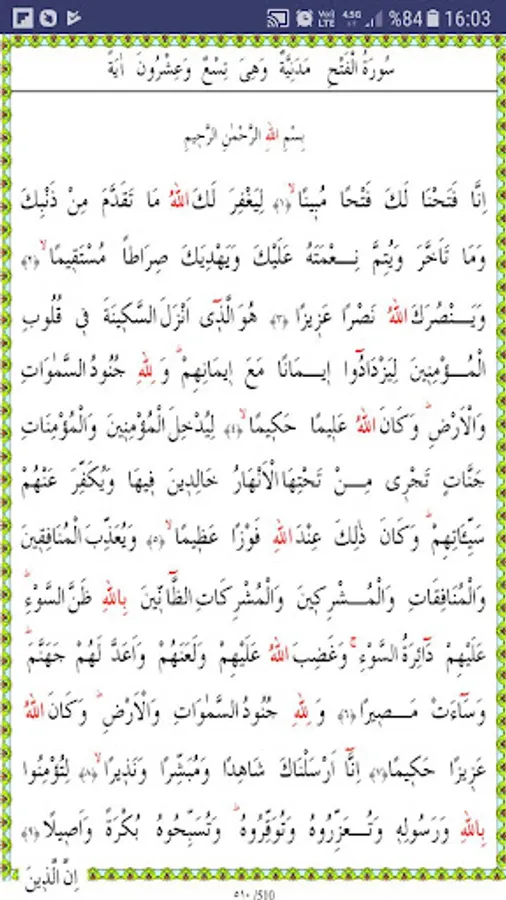 VoI LTE 4.5G %84 16:03
سُورَةُ الْفَتْحِ مَدَنِيَّةٌ وَهِىَ تِسْعٌ وَعِشْرُونَ اٰيَةً
بِسْمِ اللهِ الرَّحْمٰنِ الرَّحِيمِ
اِنَّا فَتَحْنَا لَكَ فَتْحًا مُبِينًاۙ ﴿١﴾ لِيَغْفِرَ لَكَ اللهُ مَا تَقَدَّمَ مِنْ ذَنْبِكَ
وَمَا تَاَخَّرَ وَيُتِمَّ نِعْمَتَهُ عَلَيْكَ وَيَهْدِيَكَ صِرَاطاً مُسْتَقِيمًاۙ ﴿٢﴾
وَيَنْصُرَكَ اللهُ نَصْرًا عَزِيزًا ﴿٣﴾ هُوَ الَّذِٓى اَنْزَلَ السَّكِينَةَ فِى قُلُوبِ
الْمُؤْمِنِينَ لِيَزْدَادُٓوا اِيمَانًا مَعَ اِيمَانِهِمْۜ وَلِلهِ جُنُودُ السَّمٰوَاتِ
وَالْاَرْضِۜ وَكَانَ اللهُ عَلِيمًا حَكِيمًاۙ ﴿٤﴾ لِيُدْخِلَ الْمُؤْمِنِينَ وَالْمُؤْمِنَاتِ
جَنَّاتٍ تَجْرِى مِنْ تَحْتِهَا الْاَنْهَارُ خَالِدِينَ فِيهَا وَيُكَفِّرَ عَنْهُمْ
سَيِّئَاتِهِمْۜ وَكَانَ ذٰلِكَ عِنْدَ اللهِ فَوْزًا عَظِيمًاۙ ﴿٥﴾ وَيُعَذِّبَ الْمُنَافِقِينَ
وَالْمُنَافِقَاتِ وَالْمُشْرِكِينَ وَالْمُشْرِكَاتِ الظَّٓانِّينَ بِاللهِ ظَنَّ السَّوْءِۜ
عَلَيْهِمْ دَٓائِرَةُ السَّوْءِۚ وَغَضِبَ اللهُ عَلَيْهِمْ وَلَعَنَهُمْ وَاَعَدَّ لَهُمْ جَهَنَّمَۜ
وَسَٓاءَتْ مَصِيرًا ﴿٦﴾ وَلِلهِ جُنُودُ السَّمٰوَاتِ وَالْاَرْضِۜ وَكَانَ اللهُ
عَزِيزًا حَكِيمًا ﴿٧﴾ اِنَّٓا اَرْسَلْنَاكَ شَاهِدًا وَمُبَشِّرًا وَنَذِيرًاۙ ﴿٨﴾ لِتُؤْمِنُوا
بِاللهِ وَرَسُولِهِ وَتُعَزِّرُوهُ وَتُوَقِّرُوهُۜ وَتُسَبِّحُوهُ بُكْرَةً وَاَصِيلًا ﴿٩﴾
اِنَّ الَّذِينَ
٥١٠/510